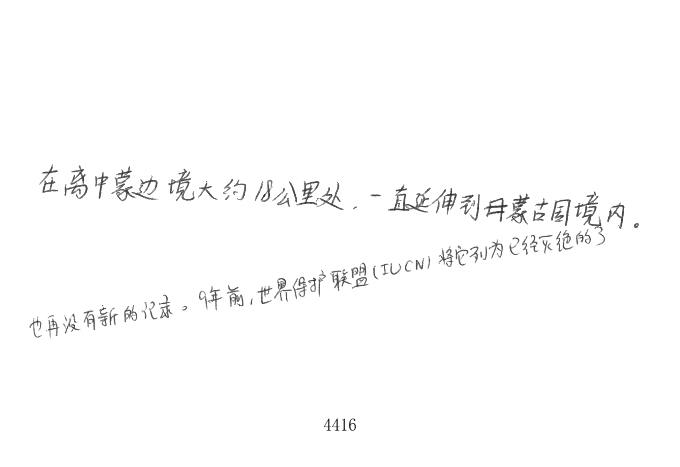 在离中蒙边境大约18公里处，一直延伸到蒙古国境内。
也再没有新的记录。9年前，世界保护联盟(IUCN)将它列为已经灭绝的了
4416